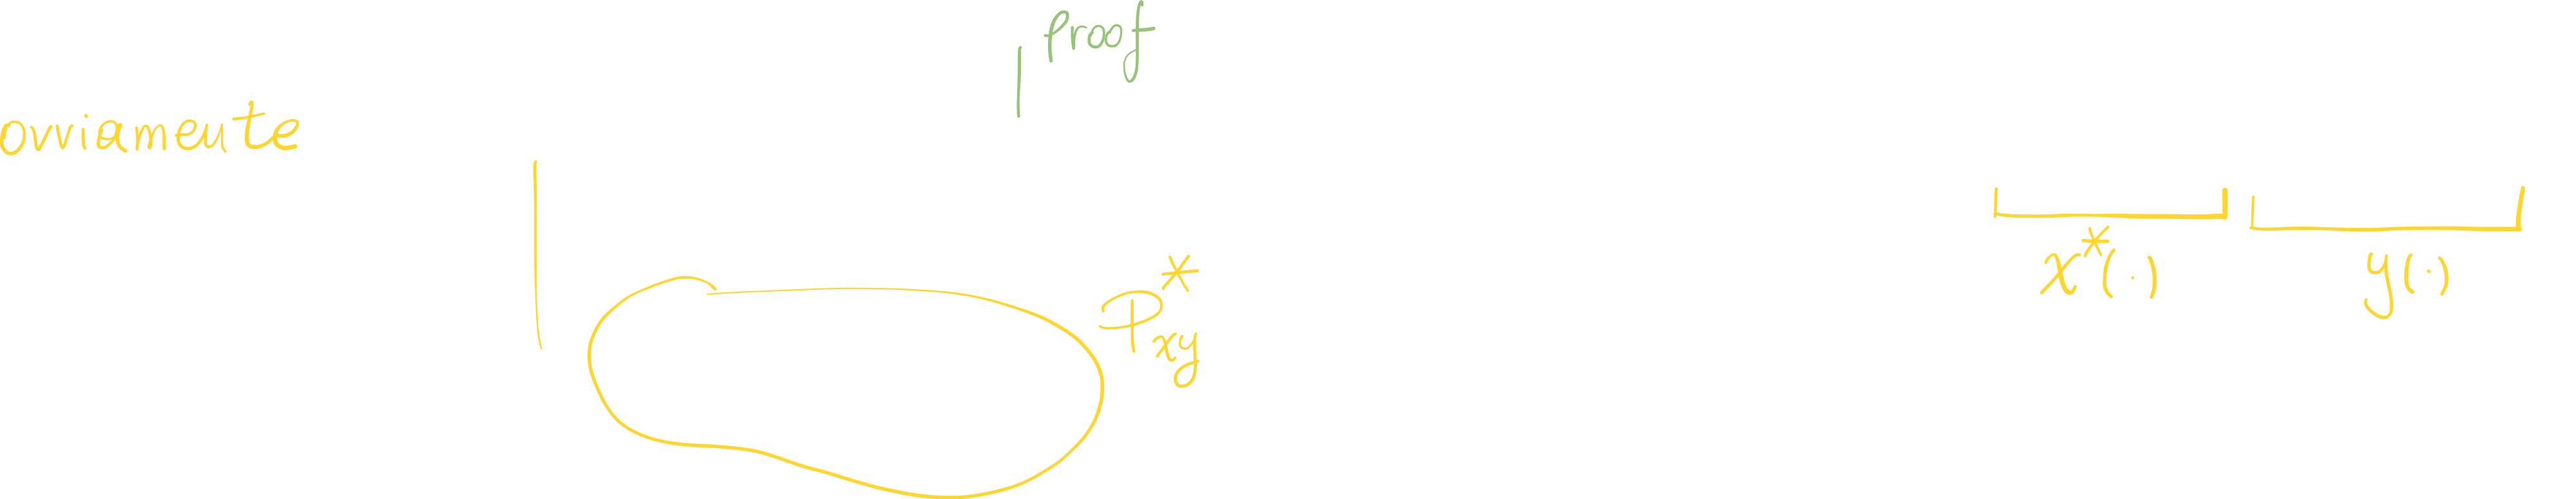 Proof
ovviamente
P*xy
x*(·) y(·)